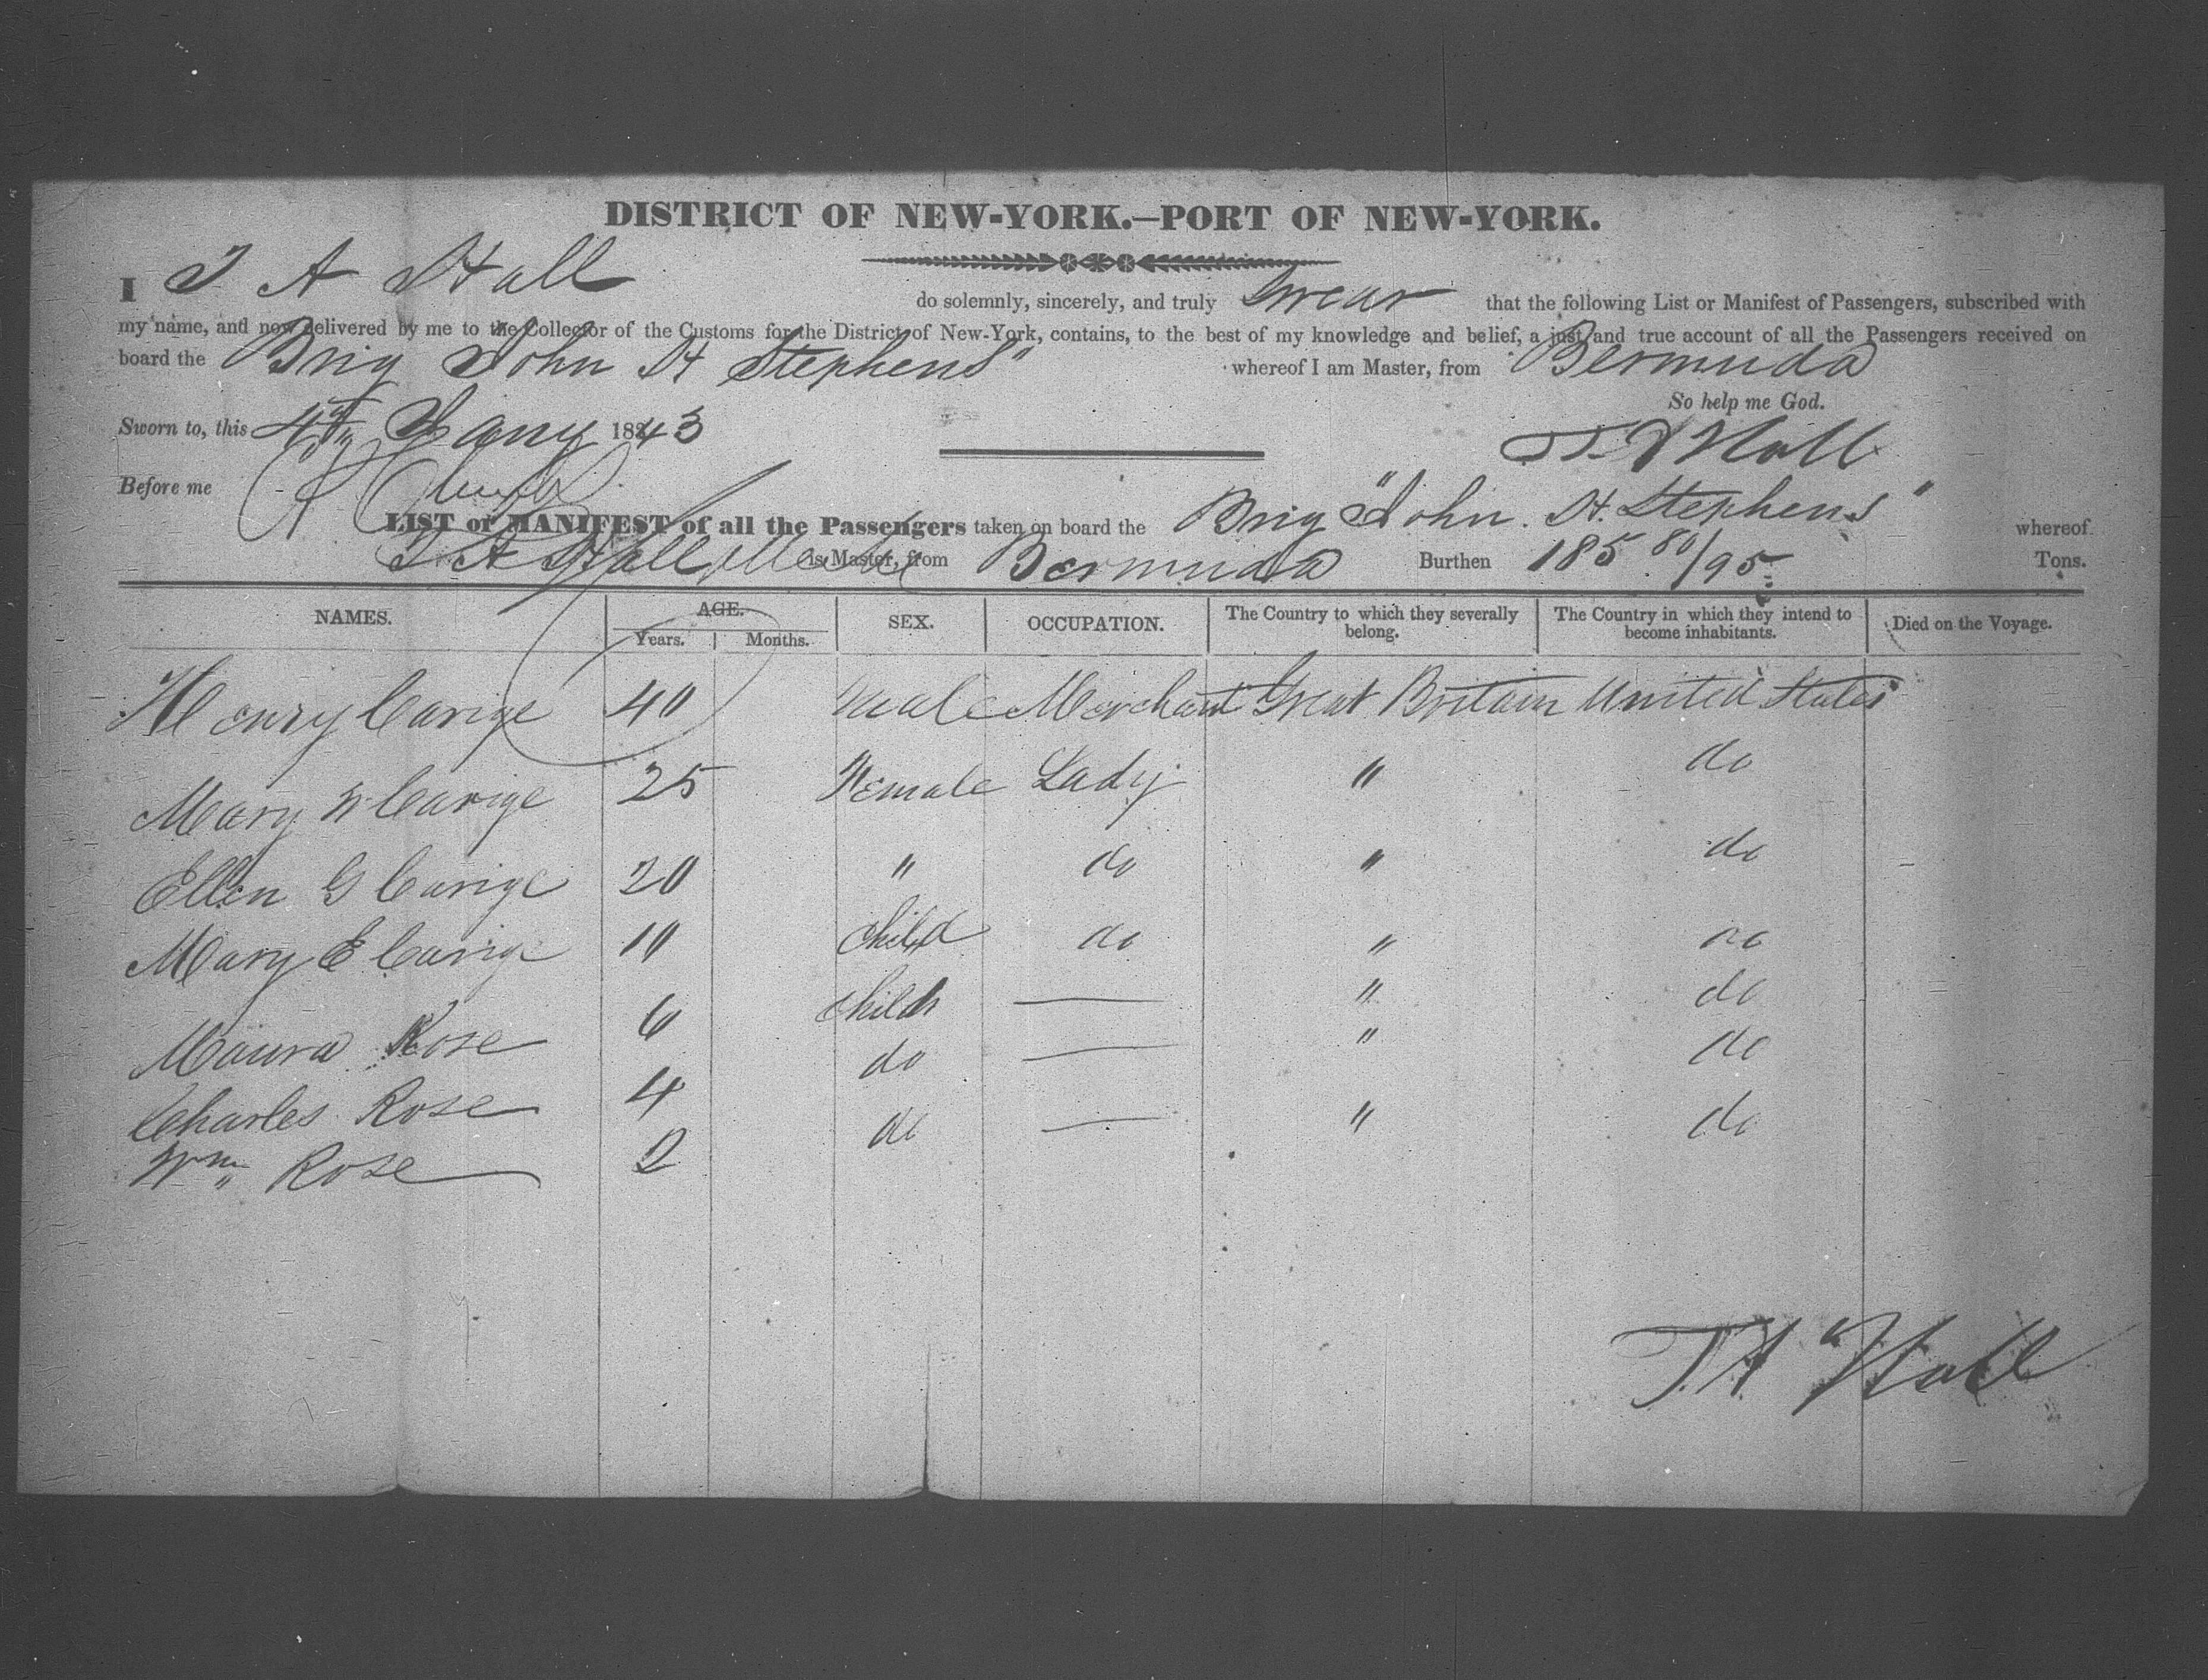 DISTRICT OF NEW-YORK.—PORT OF NEW-YORK.
I T A Hall do solemnly, sincerely, and truly Swear that the following List or Manifest of Passengers, subscribed with
my name, and now delivered by me to the Collector of the Customs for the District of New-York, contains, to the best of my knowledge and belief, a just and true account of all the Passengers received on
board the Brig John H Stephens" whereof I am Master, from Bermuda
So help me God.
Sworn to, this 4th Jany 1843
T A Hall
Before me
LIST or MANIFEST of all the Passengers taken on board the Brig "John. H. Stephens" whereof
T A Hall is Master, from Bermuda Burthen 185 80/95 Tons.
NAMES. AGE. SEX. OCCUPATION. The Country to which they severally belong. The Country in which they intend to become inhabitants. Died on the Voyage.
Years. Months.
Henry Carige 40 Male Merchant Great Britain United States
Mary W Carige 25 Female Lady " do
Ellen G Carige 20 " do " do
Mary E Carige 10 Child do " do
Maura Rose 6 Child — " do
Charles Rose 4 do — " do
Wm Rose 2 do — " do
T. A Hall